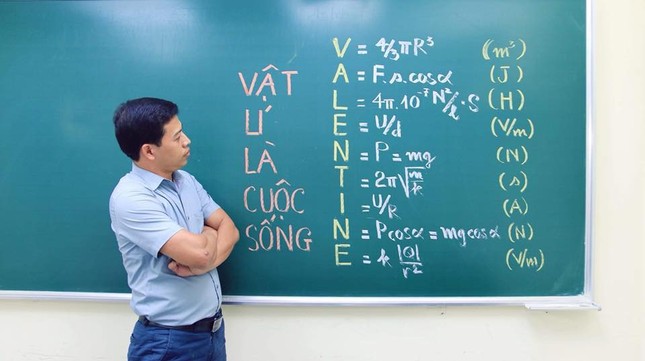 VẬT
LÍ
LÀ
CUỘC
SỐNG
V = 4/3πR³ (m³)
A = F.s.cosα (J)
L = 4π.10⁻⁷N²/ℓ.S (H)
E = U/d (V/m)
N = P = mg (N)
T = 2π√(m/k) (s)
I = U/R (A)
N = Pcosα = mgcosα (N)
E = k |Q|/r² (V/m)